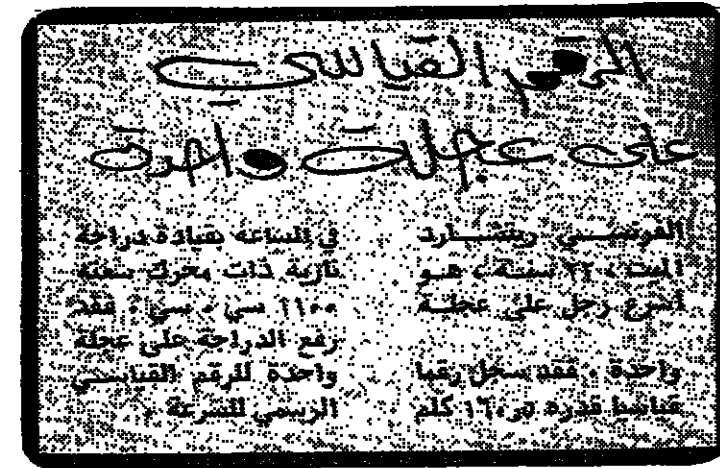 الرقم القياسي
على عجلة واحدة
الفرنسي ريتشارد
الميت ، ٢٢ سنة ، هو
أسرع رجل على عجلة
واحدة . فقد سجل رقما
قياسيا قدره ١٦٠,٥ كلم
في الساعة بقيادة دراجة
نارية ذات محرك بسعة
١١٠٠ سي . سي . فقد
رفع الدراجة على عجلة
واحدة للرقم القياسي
الرسمي للسرعة .